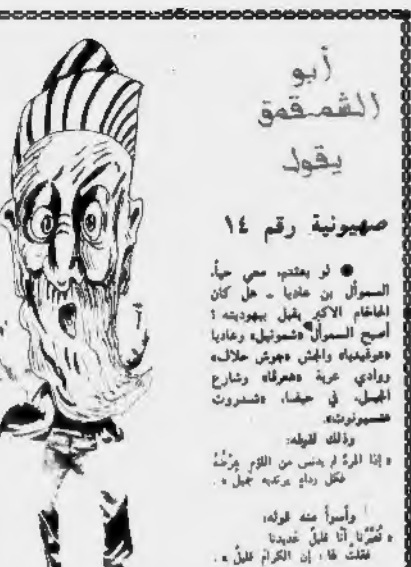 أبو
الشمقمق
يقول
صهيونية رقم ١٤
● لو بعثتم معي حياً،
السموأل بن عاديا - هل كان
الحاخام الاكبر يقبل بيهوديته ؟
أصبح السموأل «شموئيل» وعاديا
«عوفيديا» والجش «جوش حلاف»
ووادي عربة «هعرفا» وشارع
الجبل، في حيفا، «شديروت
هتسيونوت».
وذلك لقوله:
« إذا المرء لم يدنس من اللؤم عِرْضُهُ
فكل رداءٍ يرتديه جميل » .
وأسوأ منه قوله:
« تُعَيِّرُنا أنا قليلٌ عديدنا
فقلتُ لها : إن الكرامَ قليلُ » .